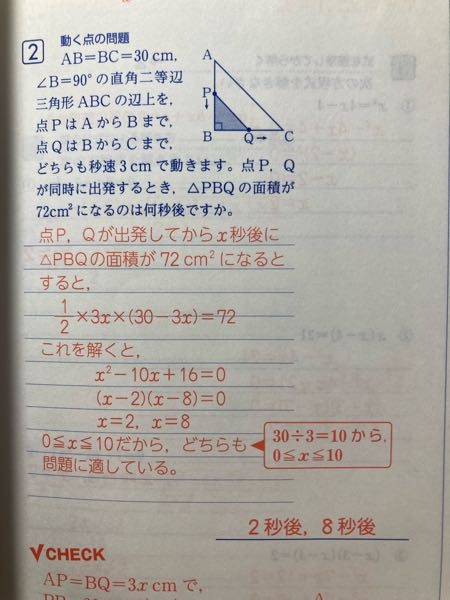 2 動く点の問題
AB=BC=30cm,
∠B=90°の直角二等辺
三角形ABCの辺上を,
点PはAからBまで,
点QはBからCまで,
どちらも秒速3cmで動きます。点P, Q
が同時に出発するとき, △PBQの面積が
72cm²になるのは何秒後ですか。
A
P
↓
B
Q→
C
点P, Qが出発してからx秒後に
△PBQの面積が72cm²になると
すると,
1/2×3x×(30−3x)=72
これを解くと,
x²−10x+16=0
(x−2)(x−8)=0
x=2, x=8
0≦x≦10だから, どちらも
問題に適している。
30÷3=10から,
0≦x≦10
2秒後, 8秒後
√CHECK
AP=BQ=3x cmで,
A